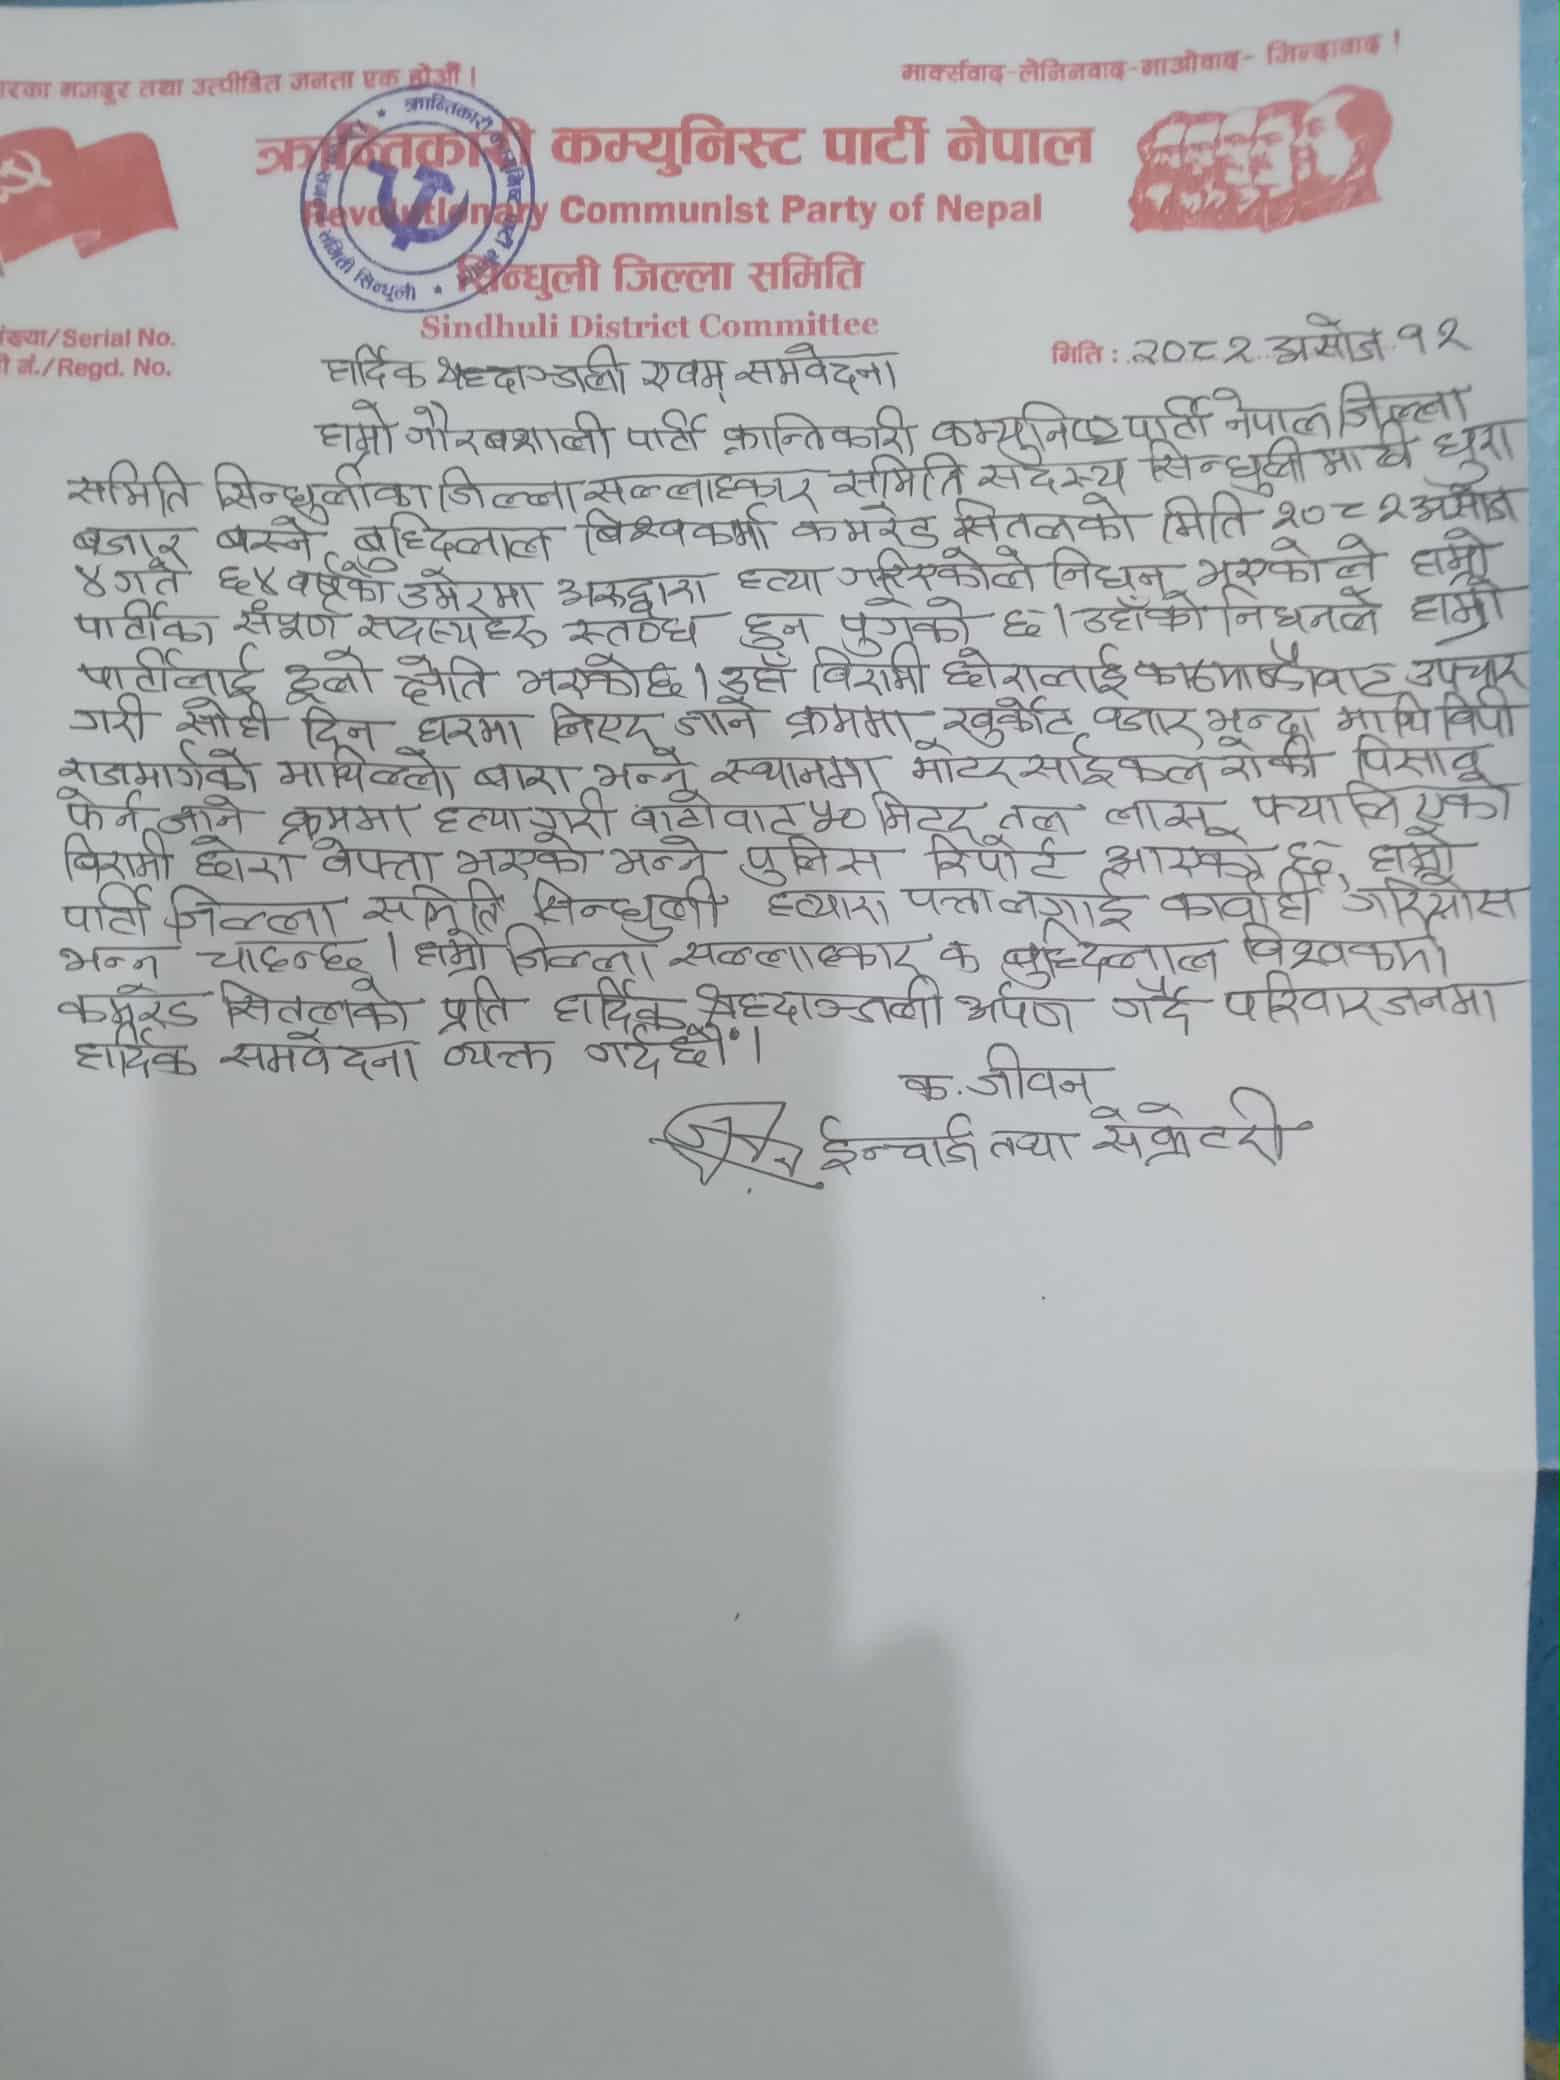 रका मजदुर तथा उत्पीडित जनता एक होऔं !
मार्क्सवाद-लेनिनवाद-माओवाद- जिन्दावाद !
क्रान्तिकारी कम्युनिस्ट पार्टी नेपाल
Revolutionary Communist Party of Nepal
सिन्धुली जिल्ला समिति
Sindhuli District Committee
ंख्या/Serial No.
ी नं./Regd. No.
मिति : २०८२ असोज १२
हार्दिक श्रध्दाञ्जली एवम् समवेदना
हाम्रो गौरबशाली पार्टी क्रान्तिकारी कम्युनिष्ट पार्टी नेपाल जिल्ला
समिति सिन्धुलीका जिल्ला सल्लाहकार समिति सदस्य सिन्धुली माढी धुरा
बजार बस्ने बुध्दिलाल बिश्वकर्मा कमरेड सितलको मिति २०८२ असोज
४ गते ६४ बर्षको उमेरमा अरुद्वारा हत्या गरिएकोले निधन भएकोले हाम्रो
पार्टीका संपूर्ण सदस्यहरु स्तव्ध हुन पुगेको छ। उहाँको निधनले हाम्रो
पार्टीलाई ठूलो क्षेति भएकोछ। उहाँ विरामी छोरालाई काठमाण्डौवाट उपचार
गरी सोही दिन घरमा लिएर जाने क्रममा खुर्कोट वजार भन्दा माथि विपी
राजमार्गको माथिल्लो बारा भन्ने स्थानमा मोटरसाईकल रोकी पिसाब
फेर्न जाने क्रममा हत्या गरी बाटोवाट ५० मिटर तल लास फ्यालिएको
विरामी छोरा वेपत्ता भएको भन्ने पुलिस रिपोर्ट आएको छ, हाम्रो
पार्टी जिल्ला समिति सिन्धुली हत्यारा पत्तालगाई कार्वाही गरियोस
भन्न चाहन्छ। हाम्रो जिल्ला सल्लाहकार क बुध्दिलाल विश्वकर्मा
कमरेड सितलको प्रति हार्दिक श्रध्दाञ्जली अर्पण गर्दै परिवारजनमा
हार्दिक समवेदना व्यक्त गर्दछौं।
क. जीवन
ईन्चार्ज तथा सेक्रेटरी